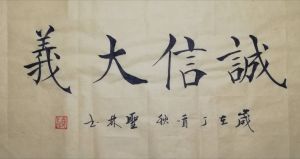 誠信大義
歲在丁酉秋 聖林書